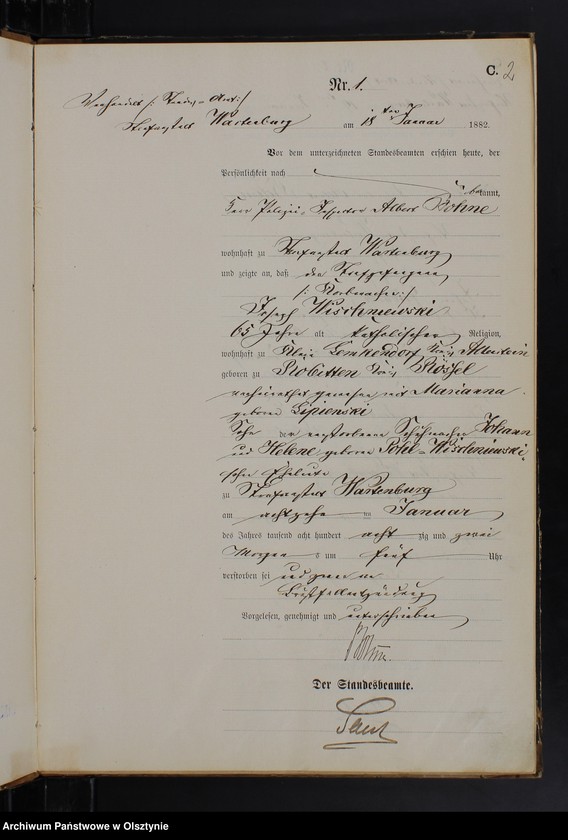 C. 2
Nr. 1.
Strafanstalt Wartenburg am 18ten Januar 1882.
Vor dem unterzeichneten Standesbeamten erschien heute, der
Persönlichkeit nach
bekannt,
Herr Polizei-Inspektor Albert Bohne
wohnhaft zu Strafanstalt Wartenburg
und zeigte an, daß der Strafgefangene
/: Korbmacher :/
Joseph Wischniewski
65 Jahre alt katholischer Religion,
wohnhaft zu Klein Lemkendorf Kreis Allenstein
geboren zu Robitten Kreis Rössel
verheirathet gewesen mit Marianna
geborene Lipienski
Sohn der verstorbenen Schuhmacher Johann
und Helene geborene Pohl-Wischniewski-
schen Eheleute
zu Strafanstalt Wartenburg
am achtzehn ten Januar
des Jahres tausend acht hundert acht zig und zwei
Morgens um fünf Uhr
verstorben sei und zwar an
Brustfellentzündung
Vorgelesen, genehmigt und unterschrieben
Bohne.
Der Standesbeamte.
Archiwum Państwowe w Olsztynie